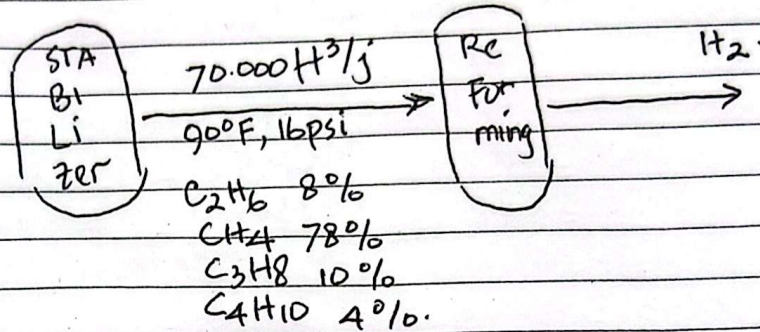 STA
BI
Li
zer
70.000 H³/j
90°F, 16psi
C2H6 8%
CH4 78%
C3H8 10%
C4H10 4%.
Re
For
ming
H2